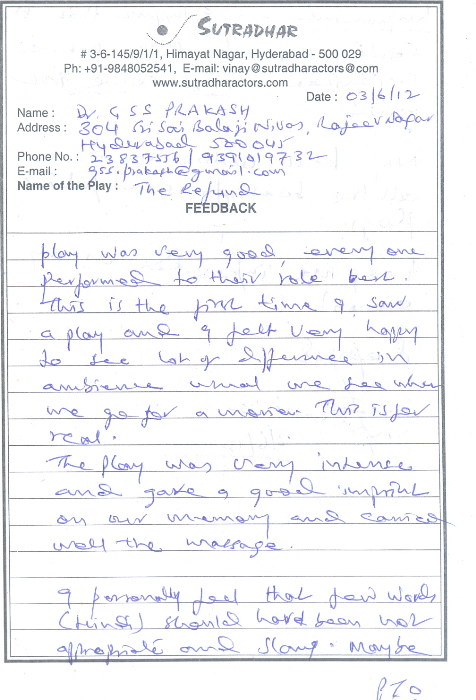 SUTRADHAR
# 3-6-145/9/1/1, Himayat Nagar, Hyderabad - 500 029
Ph: +91-9848052541, E-mail: vinay@sutradharactors@com
www.sutradharactors.com
Date : 03/6/12
Name : Dr. G S S PRAKASH
Address : 304 Sri Sai Balaji Nivas, Rajeev Nagar
Hyderabad 500045
Phone No. : 23837556 / 9391019732
E-mail : gss.prakash@gmail.com
Name of the Play : The Refund
FEEDBACK
play was very good, every one
performed to their role best.
This is the first time I saw
a play and I felt very happy
to see lot of difference in
ambience usual we see when
we go for a movie. This is for
real.
The play was very intense
and gave a good imprint
on our memory and carried
well the massage.
I personally feel that few words
(Hindi) should have been not
appropriate and slang. Maybe
PTO